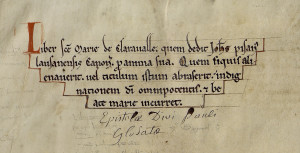 Liber sce Marie de Claravalle, quem dedit Johs pisais
lausanensis Canon, p anima sua. Quem siquis ali
enaverit. vel titulum istum abraserit. indig
nationem di omnipotentis. & be
ate marie incurret.
Epistolæ Divi Pauli
Glosatæ